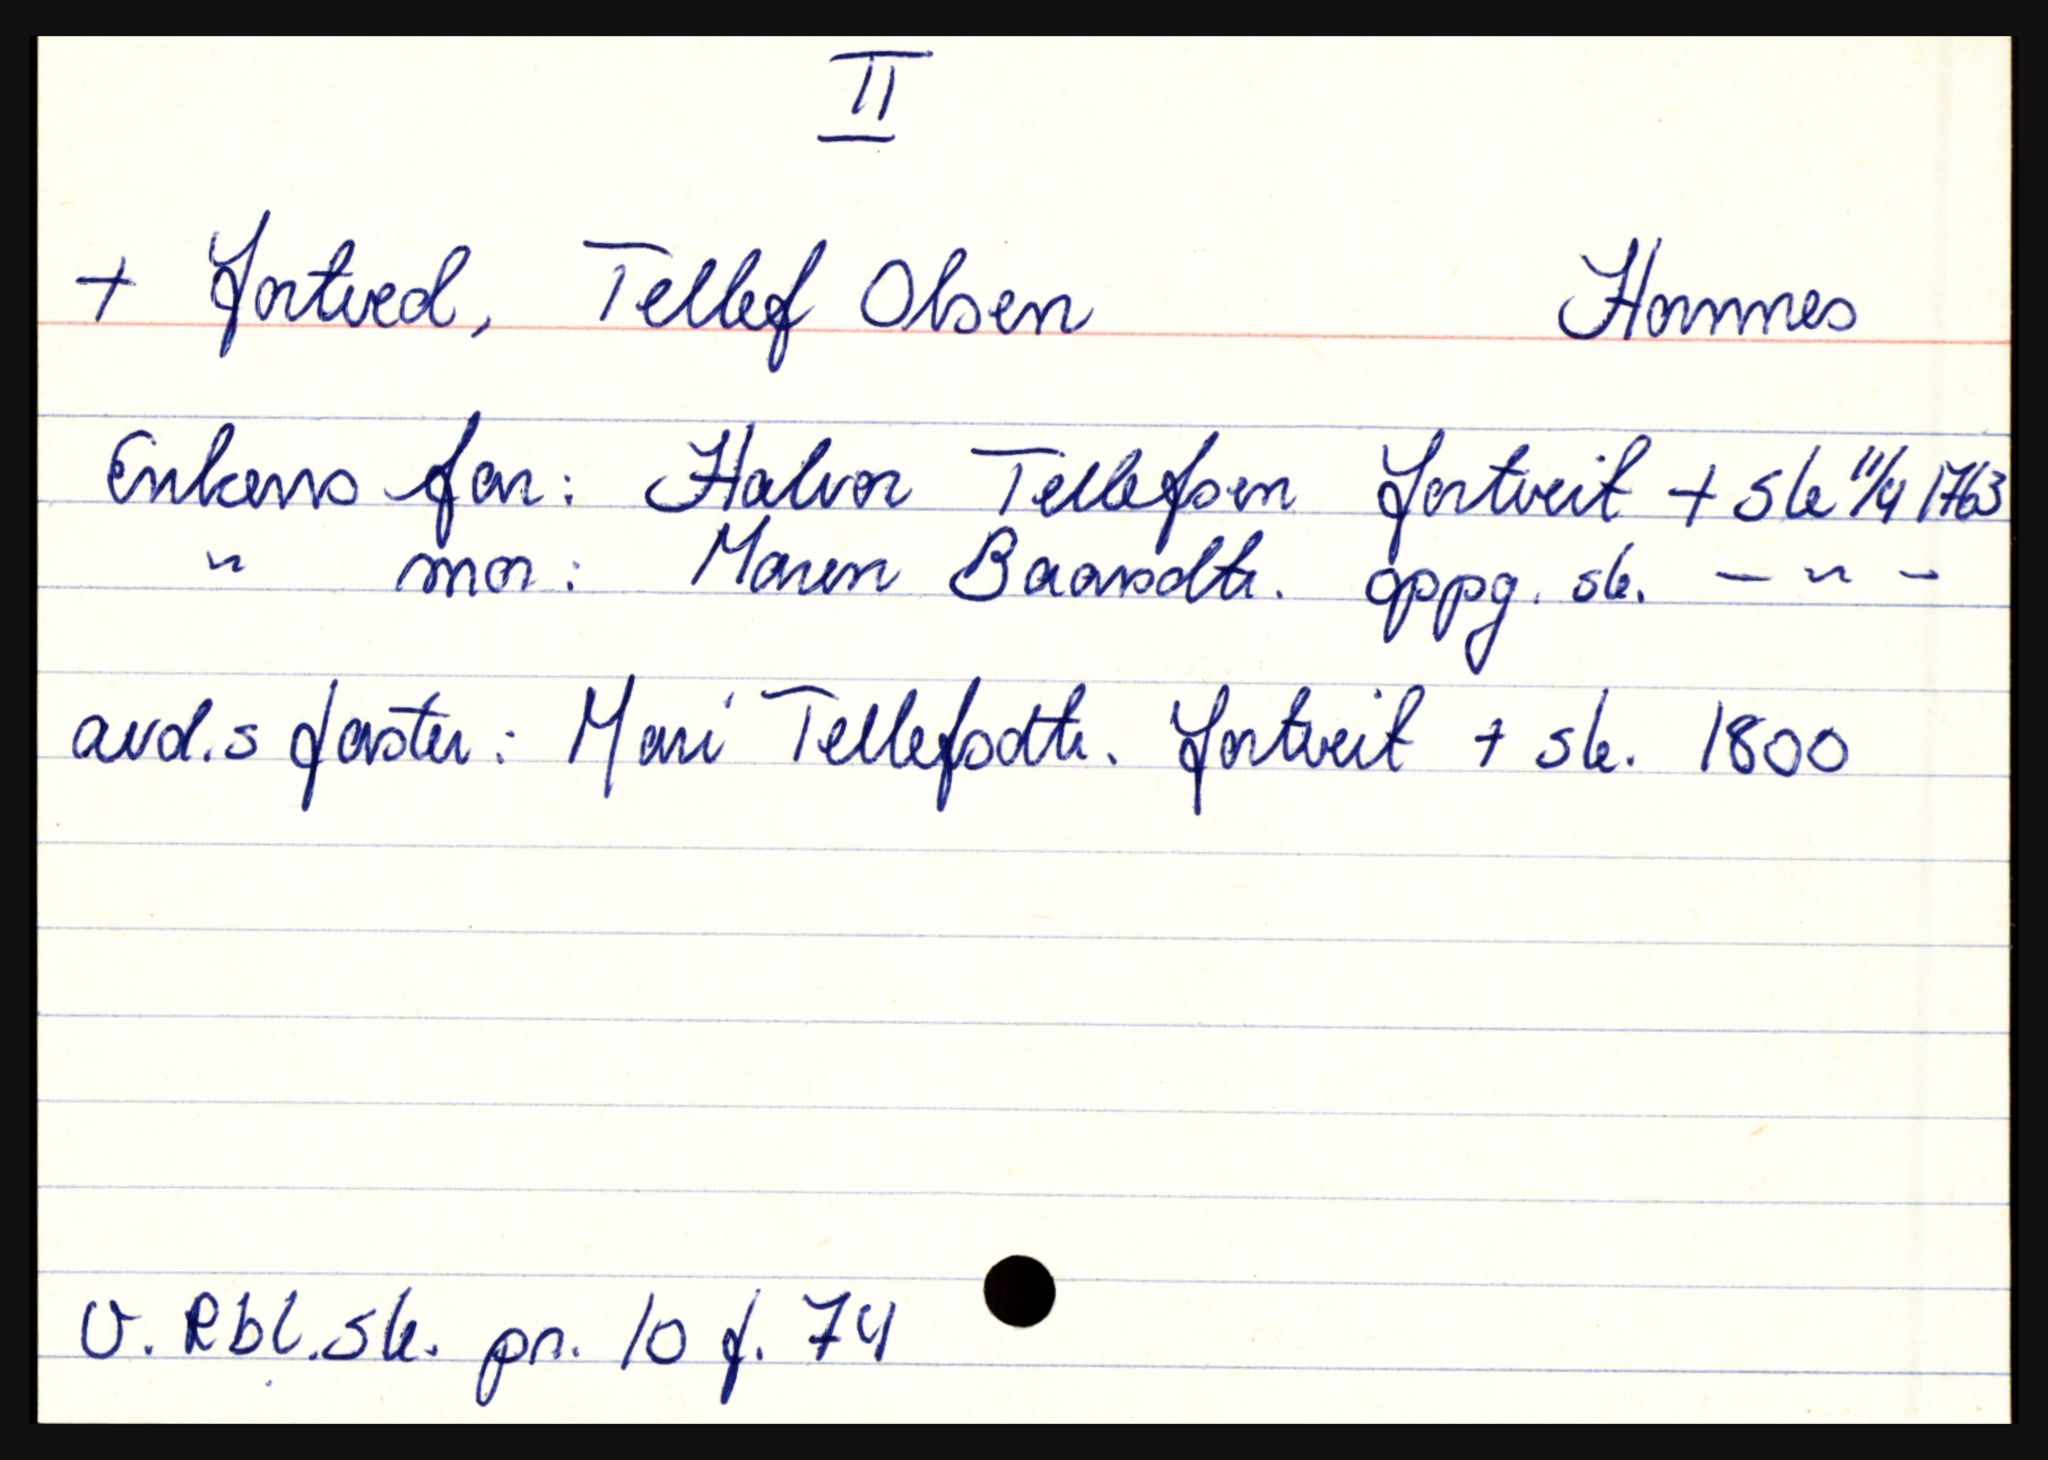 II
+ Fortved, Tellef Olsen Hornnes
Enkens far: Halvor Tellefsen Fortveit + sk 11/4 1763
" mor: Maren Baarsdtr. oppg. sk. - " -
avd.s faster: Mari Tellefsdtr. Fortveit + sk. 1800
V. Rbl.sk. pr. 10 f. 74